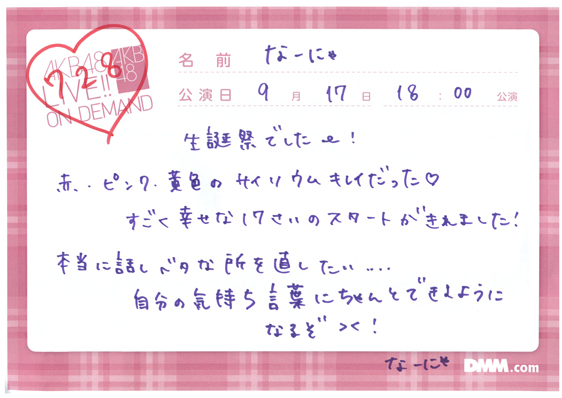 AKB48
LIVE!!
ON DEMAND
AKB
48
728
名前 なーにゃ
公演日 9月17日 18:00 公演
生誕祭でした～!
赤・ピンク・黄色のサイリウムキレイだった♡
すごく幸せな17さいのスタートがきれました!
本当に話しベタな所を直したい....
自分の気持ち言葉にちゃんとできるように
なるぞ ><!
なーにゃ
DMM.com